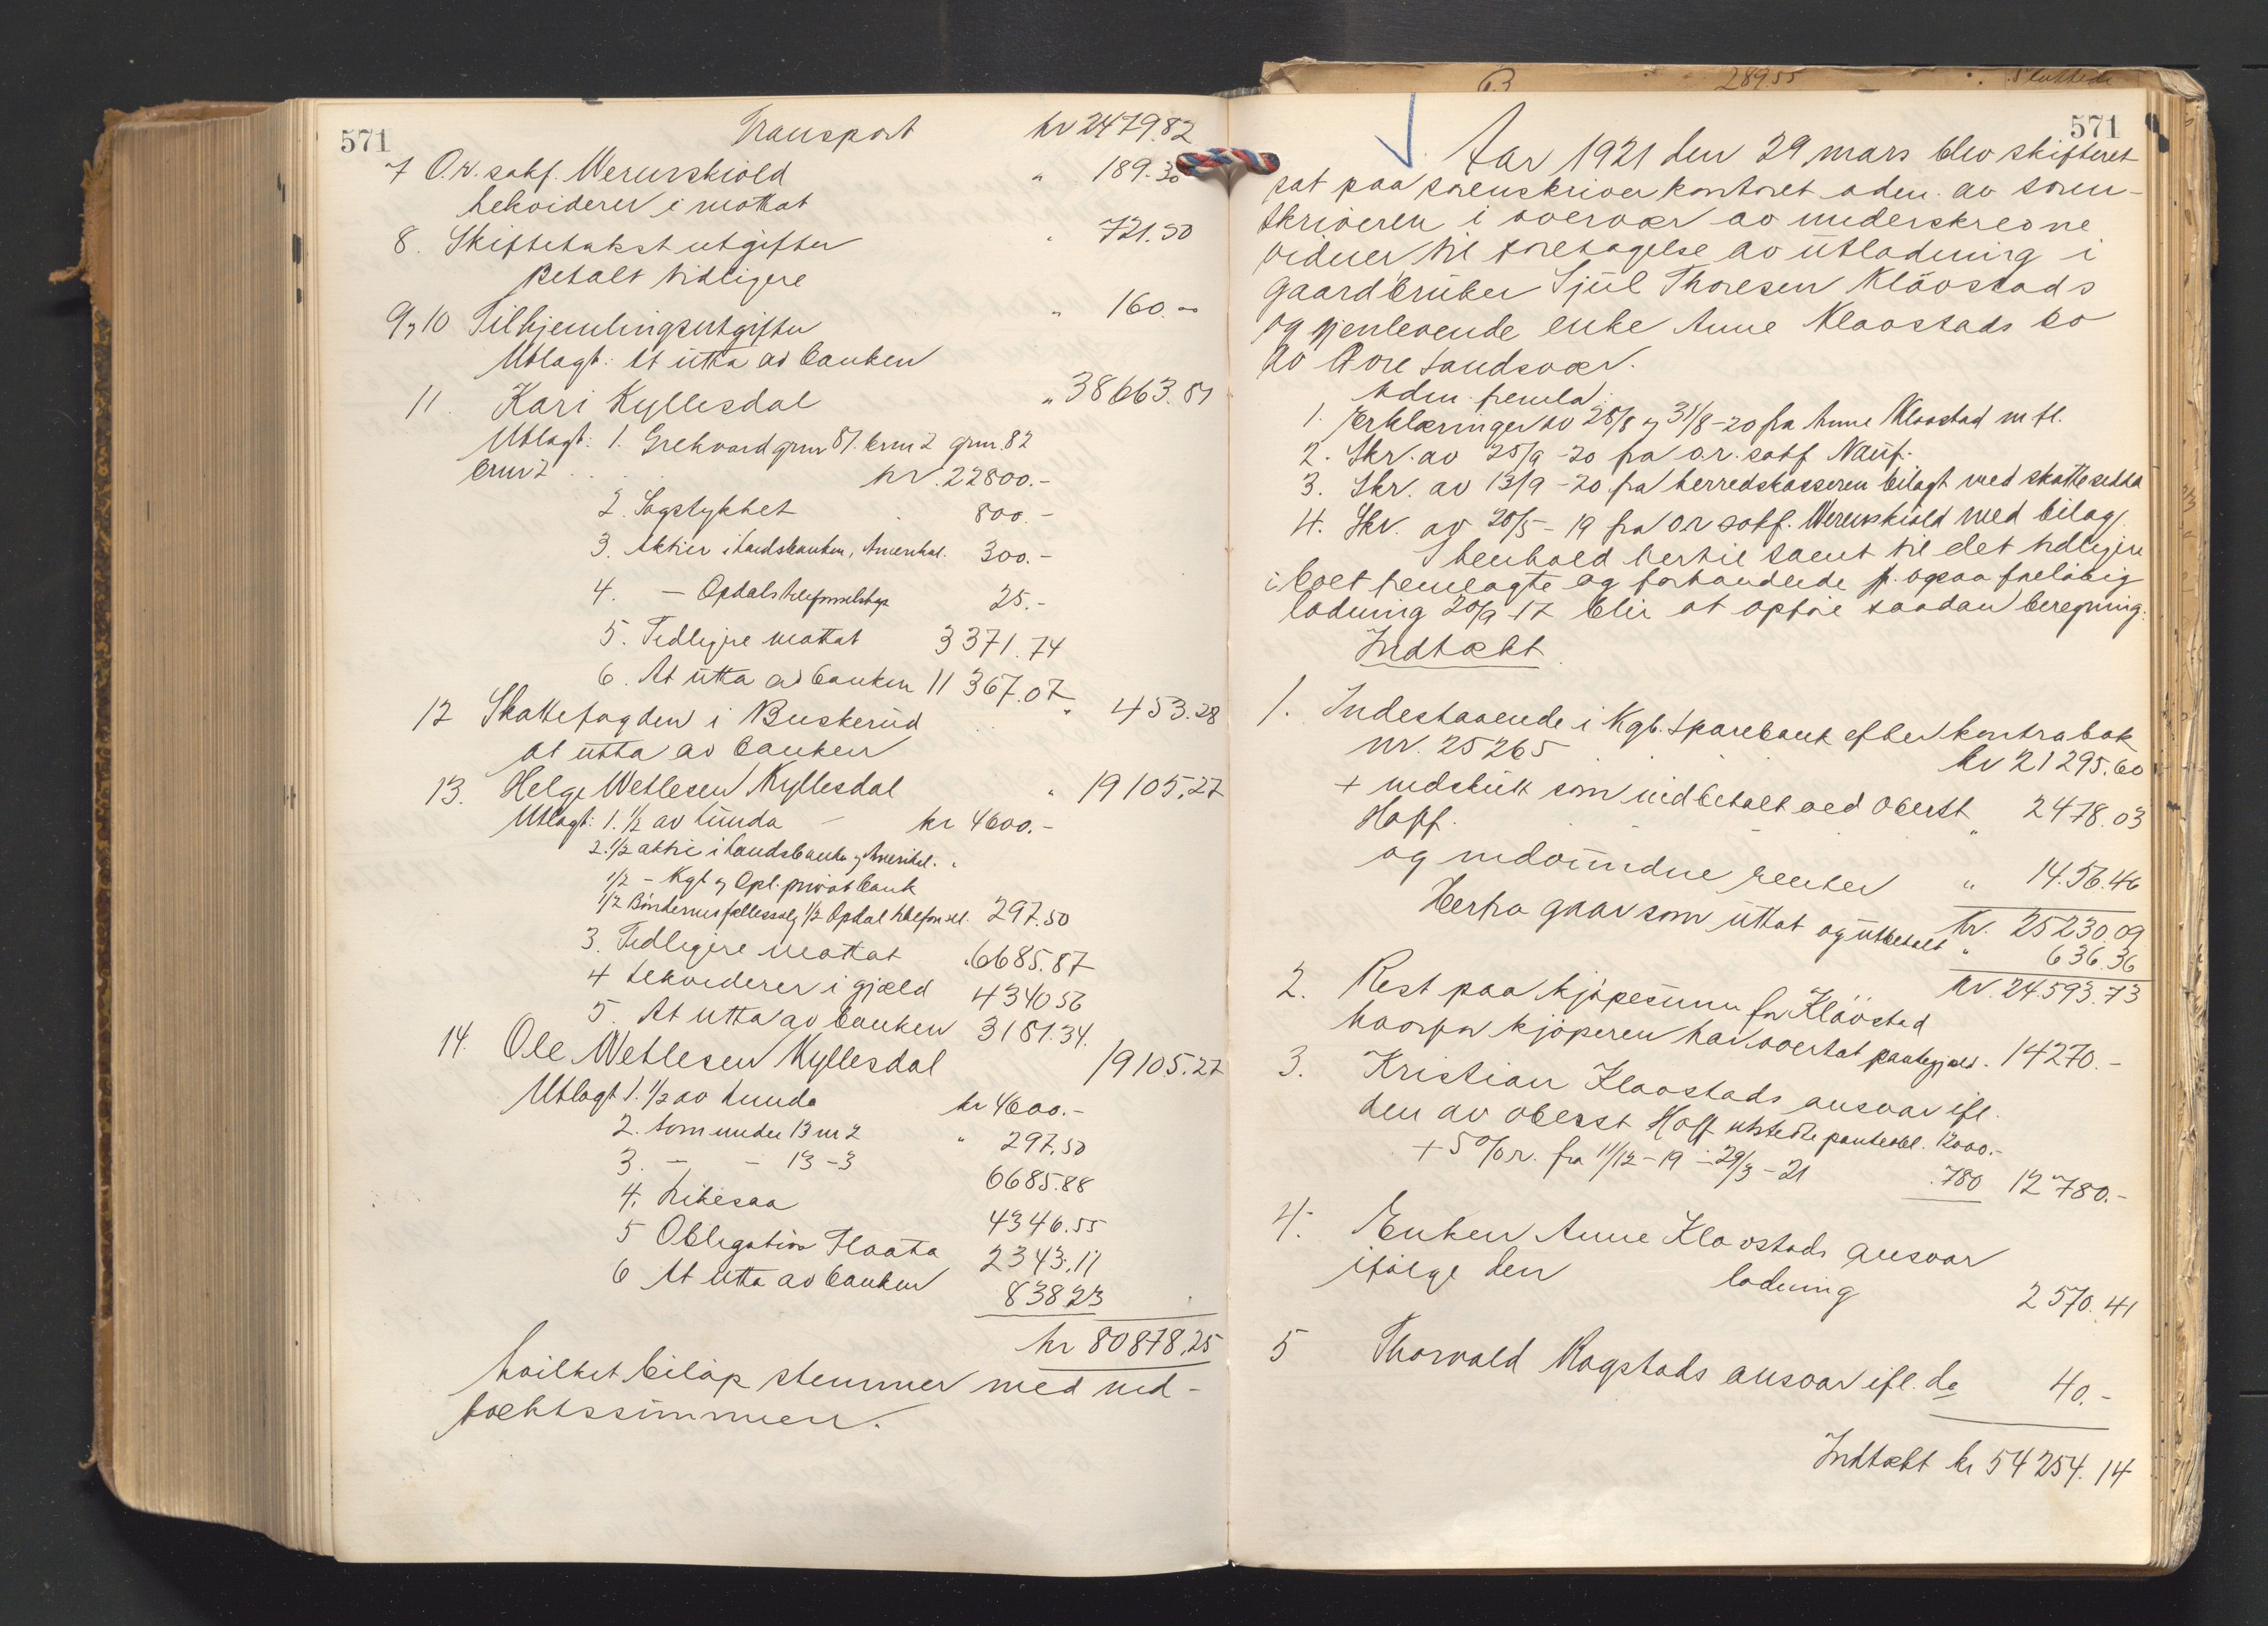 571
Transport kr 2479.82
7 O.r. sakf. Werenskiold " 189.30
Lekviderer i mottat
8. Skiftetakst utgifter " 721.50
Betalt tidligere
9 og 10 Tilhjemlingsutgifter " 160.-
Utlagt: At utta av banken
11. Kari Kyllesdal " 38663.81
Utlagt: 1. Grekvard grnr 81. brnr 2 grnr. 82
brnr 2 kr. 22800.-
2. Sagstykket 800.-
3. Aktier i Landsbanken, Amerikal. 300.-
4. — Opdals telefonselskap 25.-
5. Tidligere mottat 3371.74
6. At utta av banken 11367.07
12 Skattefogden i Buskerud " 453.28
at utta av banken
13. Helge Wetlesen Kyllesdal " 19105.27
Utlagt: 1. 1/2 av Lunda — kr 4600.-
2. 1/2 aktie i Landsbanken og Amerikal. "
1/2 — Kgb og Opl. privatbank
1/2 Böndernes fællessalg 1/2 Opdal telefonsel. 297.50
3. Tidligere mottat " 6685.87
4 Lekviderer i gjæld 4340 56
5. At utta av banken 3181.34.
14. Ole Wetlesen Kyllesdal 19105.27
Utlagt 1. 1/2 av Lunda kr 4600.-
2. Som under 13 nr 2 " 297.50
3. — - 13-3 6685.88
4. Likesaa 4346.55
5 Obligation Flaata 2343.11
6 At utta av banken 838.23
kr 80878,25
hvilket beløp stemmer med ind-
tægtssummen.
571
Aar 1921 den 29 mars blev skifteret
sat paa sorenskriverkontoret adm. av soren-
skriveren i overvær av underskrevne
vidner til foretagelse av utlodning i
gaardbruker Sjul Thoresen Klövstads
og gjenlevende enke Anne Klavstads bo
av Øvre Sandsvær.
Adm. fremla:
1. Erklæringer av 28/8 og 31/8-20 fra Anne Klavstad m fl.
2. Skr. av 25/9-20 fra o.r. sakf Nauf.
3. Skr. av 13/9-20 fra herredskasseren bilagt med skatteseddel
4. Skr. av 20/5-19 fra o.r sakf. Werenskiold med bilag.
I henhold hertil samt til det tidligere
i boet fremlagte og forhandlede jfr. ogsaa foreløbig
lodning 20/9-17 blir at opføre saadan beregning:
Indtækt
1. Indestaaende i Kgb. Sparebank efter kontrabok
nr. 25265 kr 21295.60
+ indskutt som indbetalt ved Oberst
Hoff. " 2478.03
og indvundne renter " 14.56.46
kr. 25230.09
Herfra gaar som uttat og utbetalt " 636.36
kr. 24.593.73
2. Rest paa kjöpesum for Klövstad
hvorfor kjöperen har overtat pantegjæld. 14270.-
3. Kristian Klaavstads ansvar ifl.
den av oberst Hoff utstedte panteobl. 12000.-
+ 5% r. fra 11/12-19 — 29/3-21 .780 12780.-
4. Enken Anne Klavstads ansvar
ifølge den lodning 2570.41
5 Thorvald Kogstads ansvar ifl. do 40.-
Indtækt kr 54254.14
63 289.55 Sluttede